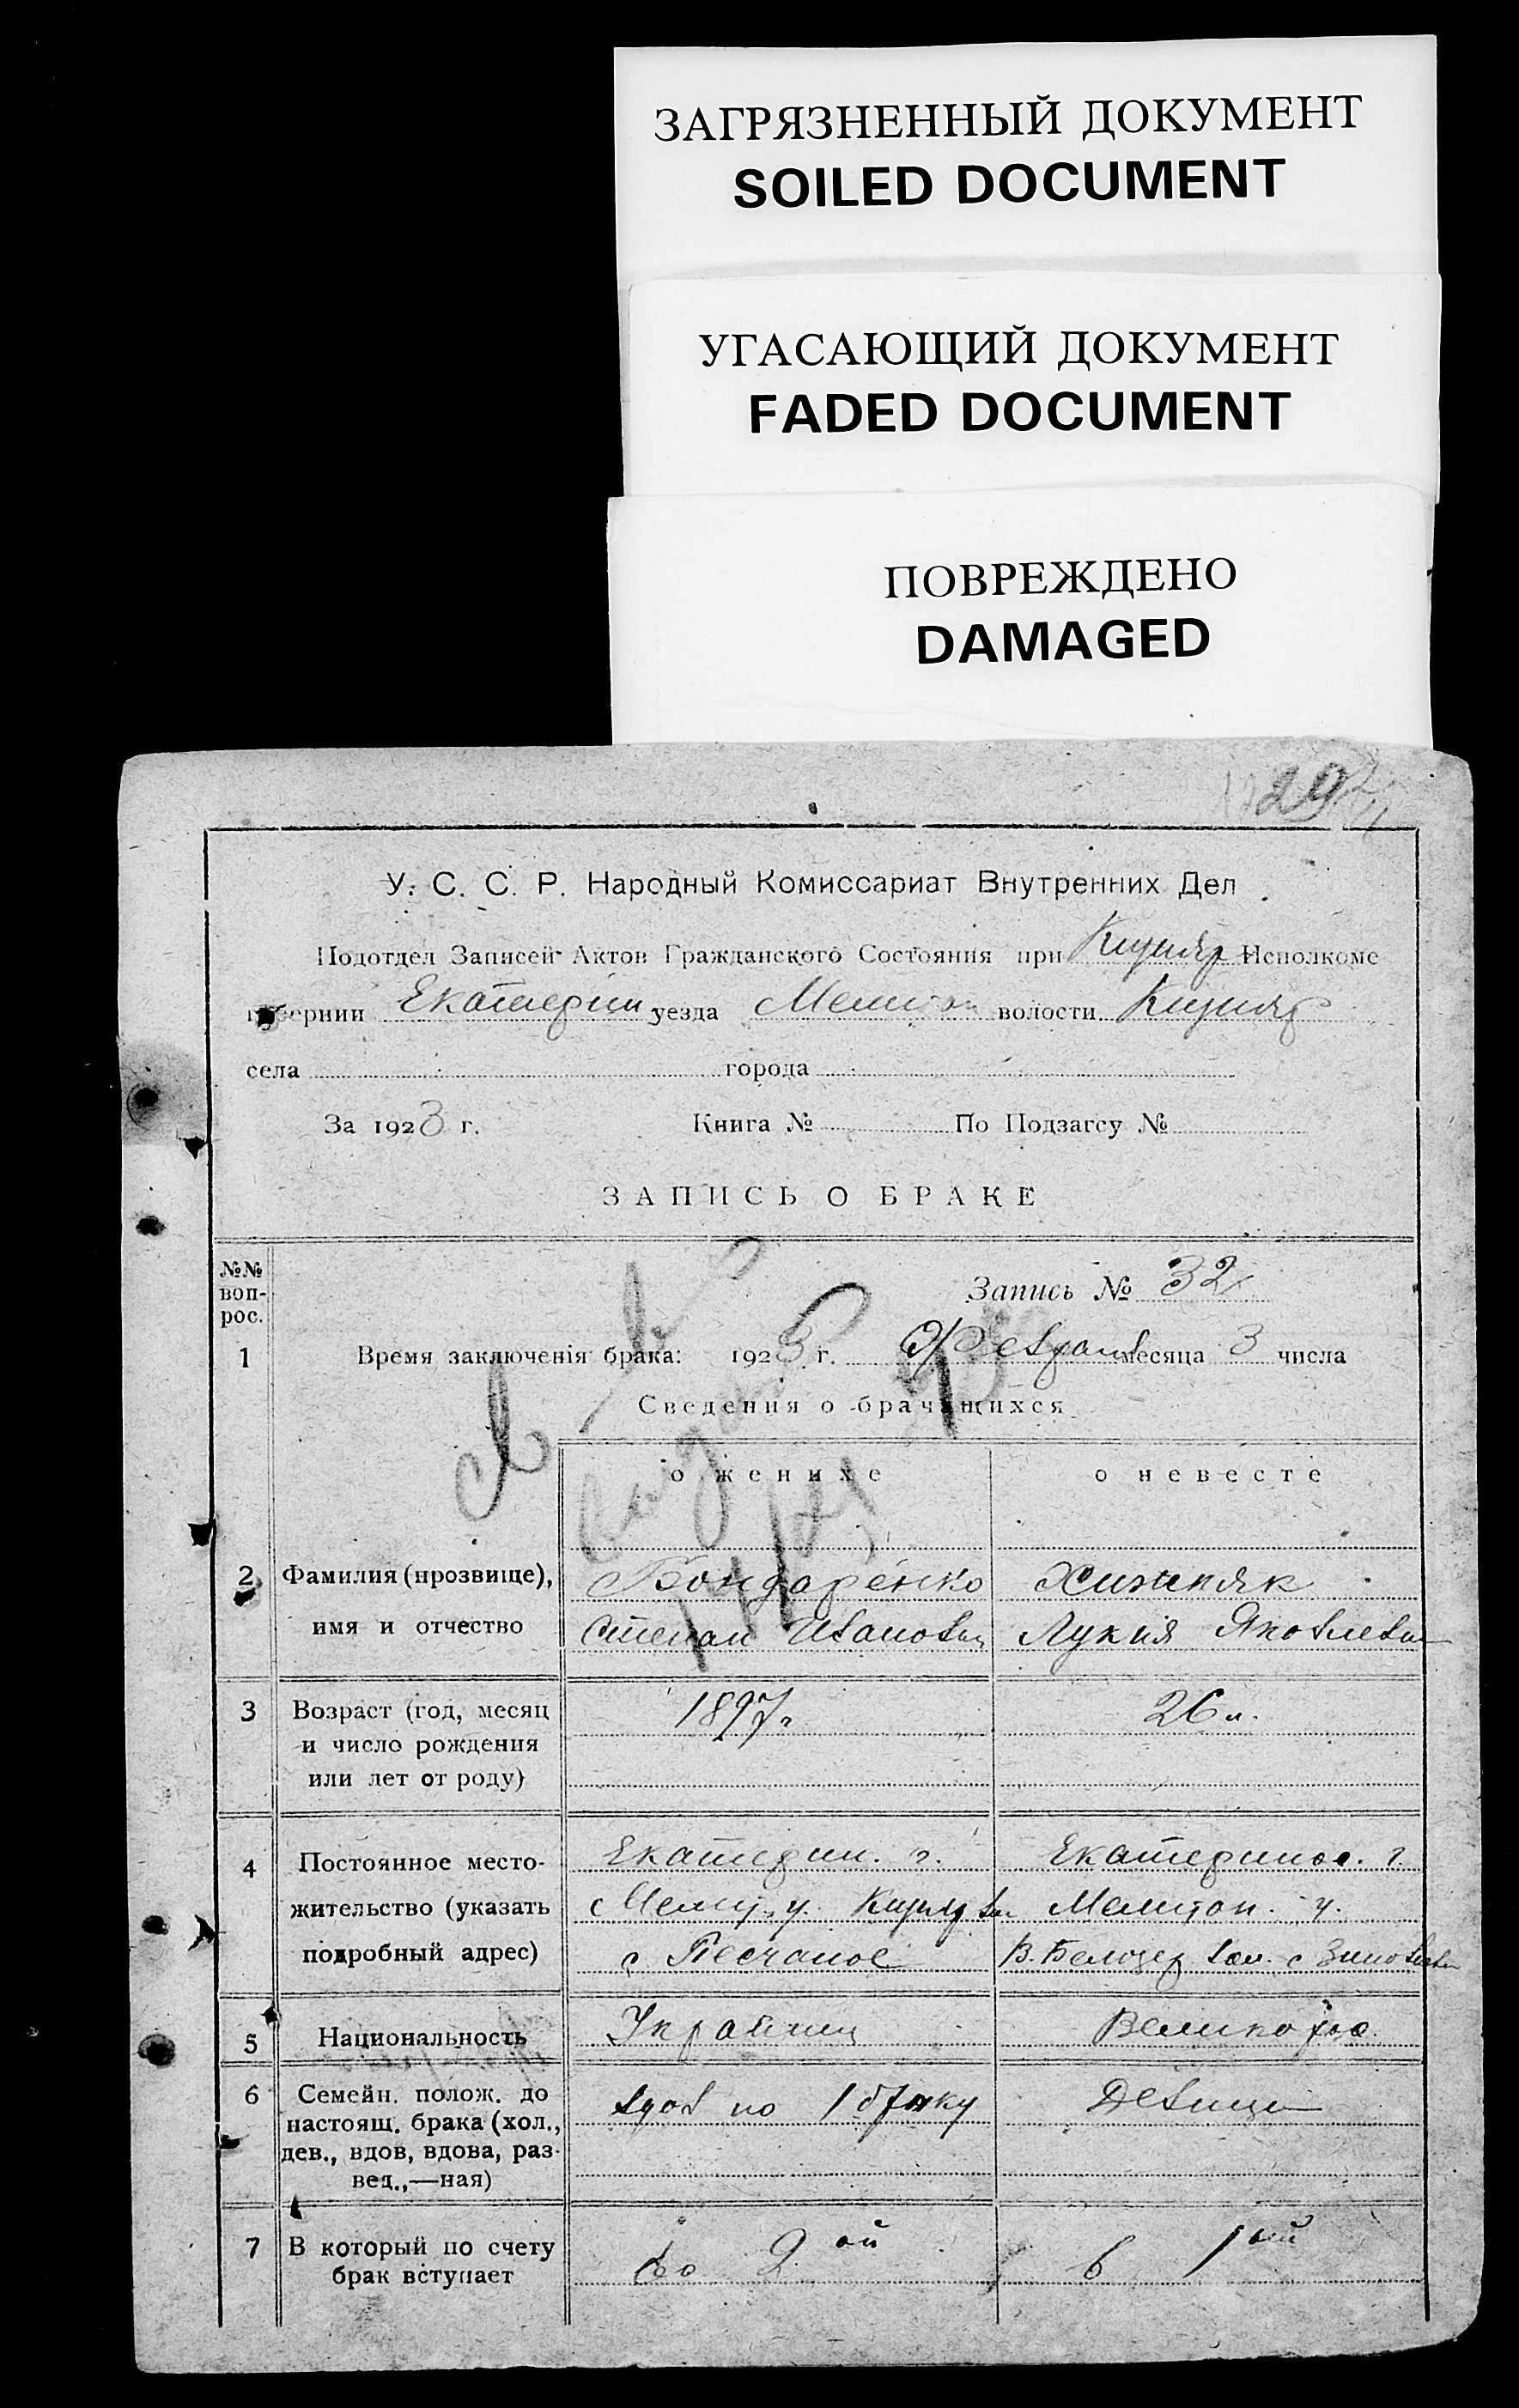 ЗАГРЯЗНЕННЫЙ ДОКУМЕНТ
SOILED DOCUMENT
УГАСАЮЩИЙ ДОКУМЕНТ
FADED DOCUMENT
ПОВРЕЖДЕНО
DAMAGED
29
У. С. С. Р. Народный Комиссариат Внутренних Дел
Подотдел Записей Актов Гражданского Состояния при Кизияр Исполкоме
губернии Екатерин уезда Мелит волости Кизияр
села города
За 1923 г. Книга № По Подзагсу №
ЗАПИСЬ О БРАКЕ
№№ воп-рос.
Запись № 32
1 Время заключенія брака: 1923 г. Февраля месяца 3 числа
Сведения о брачащихся
о женихе о невесте
2 Фамилия (прозвище), Бондаренко Хижняк
имя и отчество Степан Иванович Лукия Яковлевн
3 Возраст (год, месяц 1897 г 26 л.
и число рождения
или лет от роду)
4 Постоянное место- Екатерин. г. Екатеринос. г.
жительство (указать Мелит. у. Кизияр вл Мелитоп. у.
подробный адрес) с Песчаное В. Белозер вол. с
5 Национальность Украинец Великорос.
6 Семейн. полож. до вдов по 1 браку Девица
настоящ. брака (хол.,
дев., вдов, вдова, раз-
вед.,—ная)
7 В который по счету во 2ой в 1ый
брак вступает